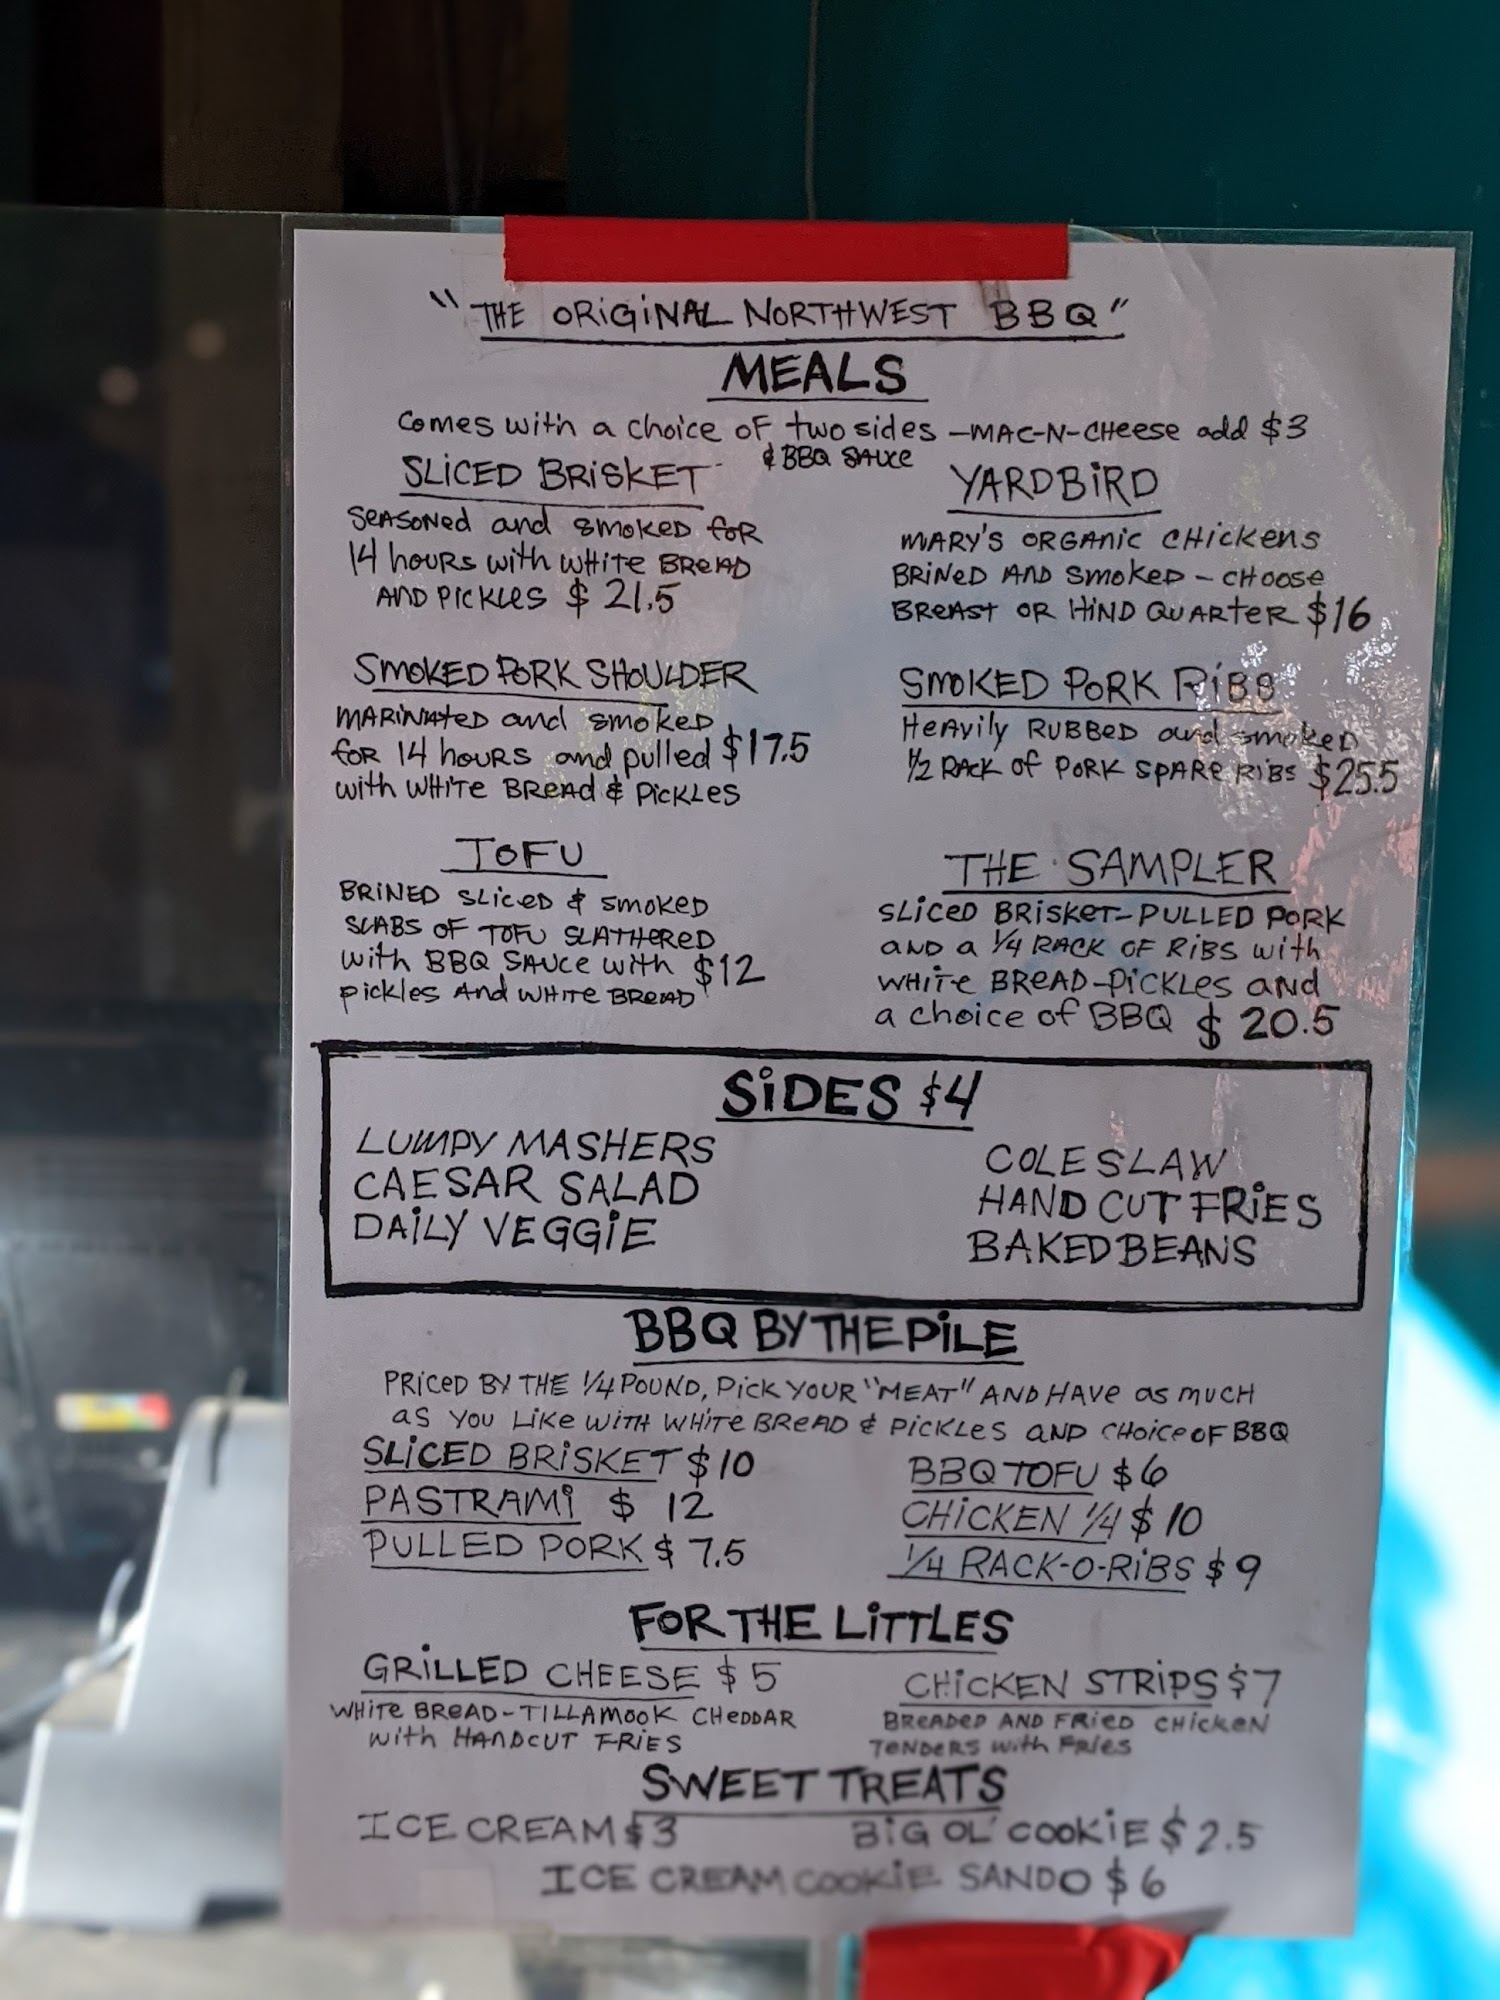 "THE ORiGiNAL NORTHWEST BBQ"
MEALS
Comes with a choice of two sides -MAC-N-CHeese add $3
& BBQ SAUce
SLiCED BRiSKET
SeASONed and smoked foR
14 hours with WHite BReAD
AND PicKles $ 21.5
YARDBiRD
MARY'S ORGANic CHickens
BRiNeD AND Smoked - CHOOSe
BReAST OR HiND QUARteR $16
SMOKED PORK SHOULDER
MARiNAteD and smoked
for 14 hours and pulled $17.5
with WHite BReAd & PickLes
SMOKED PORK RiBS
Heavily RUBBeD and smoked
1/2 RACK of PORK SPARe RiBS $25.5
TOFU
BRiNED SLiceD & smoked
SLABS OF TOFU SLATHeReD
with BBQ SAUce with $12
pickles And WHite BReAD
THE SAMPLER
SLiceD BRiSKet-PULLED PORK
AND a 1/4 RACK OF RiBS with
WHite BReAD-PicKLes and
a choice of BBQ $ 20.5
SiDES $4
LUMPY MASHERS
CAESAR SALAD
DAiLY VEGGiE
COLESLAW
HAND CUT FRiES
BAKED BEANS
BBQ BY THE PiLE
PRiceD BY THE 1/4 POUND, Pick YOUR "MEAT" AND HAVe as mucH
as YOU Like WiTH WHiTe BReAD & PickLes AND CHoice OF BBQ
SLiCED BRiSKET $10
PASTRAMi $ 12
PULLED PORK $ 7.5
BBQ TOFU $6
CHiCKEN 1/4 $10
1/4 RACK-O-RiBS $9
FOR THE LiTTLES
GRiLLED CHEESE $5
WHite BReAD-TiLLAMOOK CHeDDAR
with HANDCUT FRiES
CHiCKEN STRiPS $7
BReADeD AND FRieD CHickeN
TeNDeRS with FRies
SWEET TREATS
ICE CREAM $3
BiG OL' COOKiE $2.5
ICE CREAM COOKiE SANDO $6